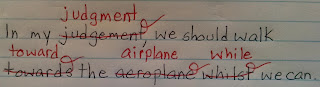 judgment
In my judgement, we should walk
toward airplane while
towards the aeroplane whilst we can.